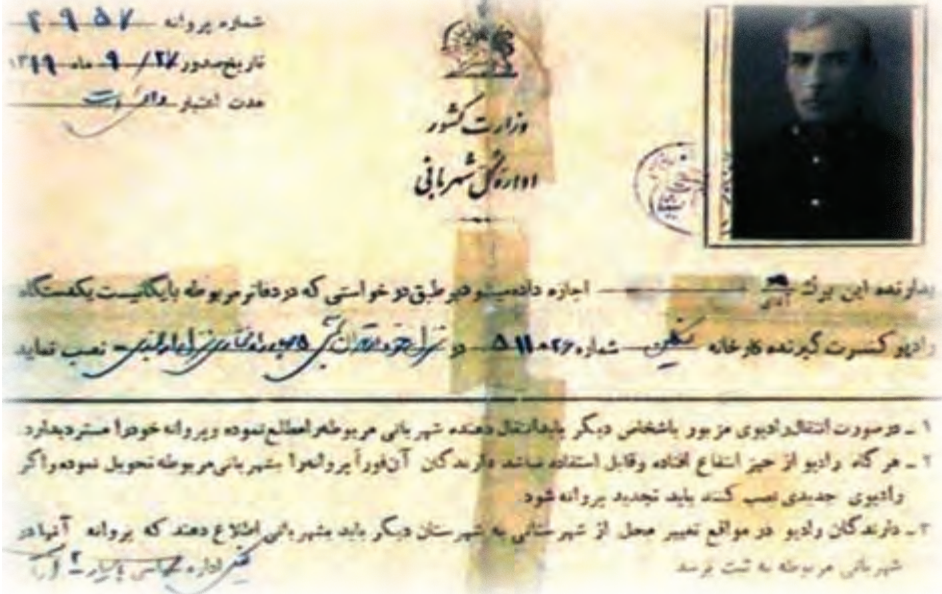 شماره پروانه ۲۹۵۷
تاریخ صدور ۲۷/ ۹ ماه ۱۳۱۹
مدت اعتبار
وزارت کشور
اداره کل شهربانی
بدارنده این برگ آقای اجازه داده میشود بر طبق درخواستی که در دفاتر مربوطه بایگانیست یکدستگاه
رادیو کنسرت گیرنده کارخانه شماره ۵۱۱۰۲۶ در نصب نماید
۱ ـ در صورت انتقال رادیوی مزبور باشخاص دیگر باید انتقال دهنده شهربانی مربوطه را مطلع نموده و پروانه خود را مسترد بدارد.
۲ ـ هر گاه رادیو از حیز انتفاع افتاده و قابل استفاده نباشد دارندگان آن فوراً پروانه را بشهربانی مربوطه تحویل نموده و اگر
رادیوی جدیدی نصب کنند باید تجدید پروانه شود.
۳ ـ دارندگان رادیو در مواقع تغییر محل از شهرستانی به شهرستان دیگر باید بشهربانی اطلاع دهند که پروانه آنها در
شهربانی مربوطه به ثبت برسد
اداره